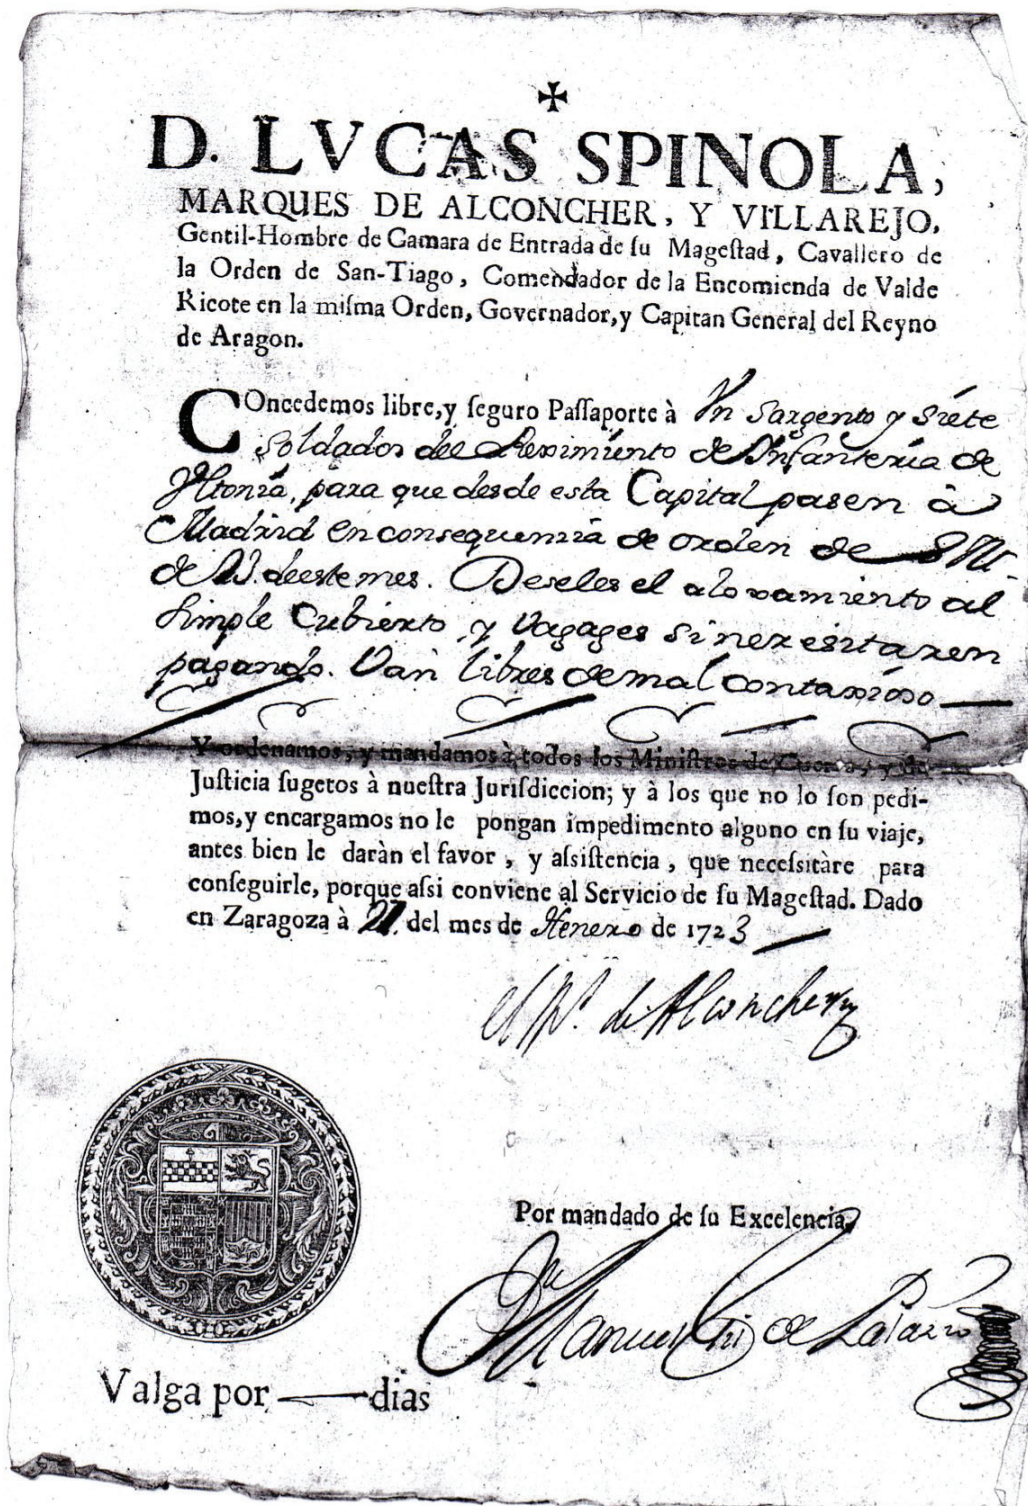 D. LVCAS SPINOLA,
MARQUES DE ALCONCHER, Y VILLAREJO,
Gentil-Hombre de Camara de Entrada de ſu Mageſtad, Cavallero de
la Orden de San-Tiago, Comendador de la Encomienda de Valde
Ricote en la miſma Orden, Governador, y Capitan General del Reyno
de Aragon.
COncedemos libre, y ſeguro Paſſaporte à Vn Sargento y siete
soldados del Reximiento de Infanteria de
para que desde esta Capital pasen à
Madrid en consequenzia de orden de S M.
de deeste mes. Deseles el aloxamiento al
simple Cubierto, y Vagages si nezesitaren
pagando. Van libres de mal contaxioso
Y ordenamos, y mandamos à todos los Miniſtros de Guerra, y de
Juſticia ſugetos à nueſtra Juriſdiccion; y à los que no lo ſon pedi-
mos, y encargamos no le pongan impedimento alguno en ſu viaje,
antes bien le daràn el favor, y aſsiſtencia, que neceſsitàre para
conſeguirle, porque aſsi conviene al Servicio de ſu Mageſtad. Dado
en Zaragoza à 21. del mes de Henero de 1723
el M.s de Alconcher
Por mandado de ſu Excelencia,
Manuel de
Valga por dias